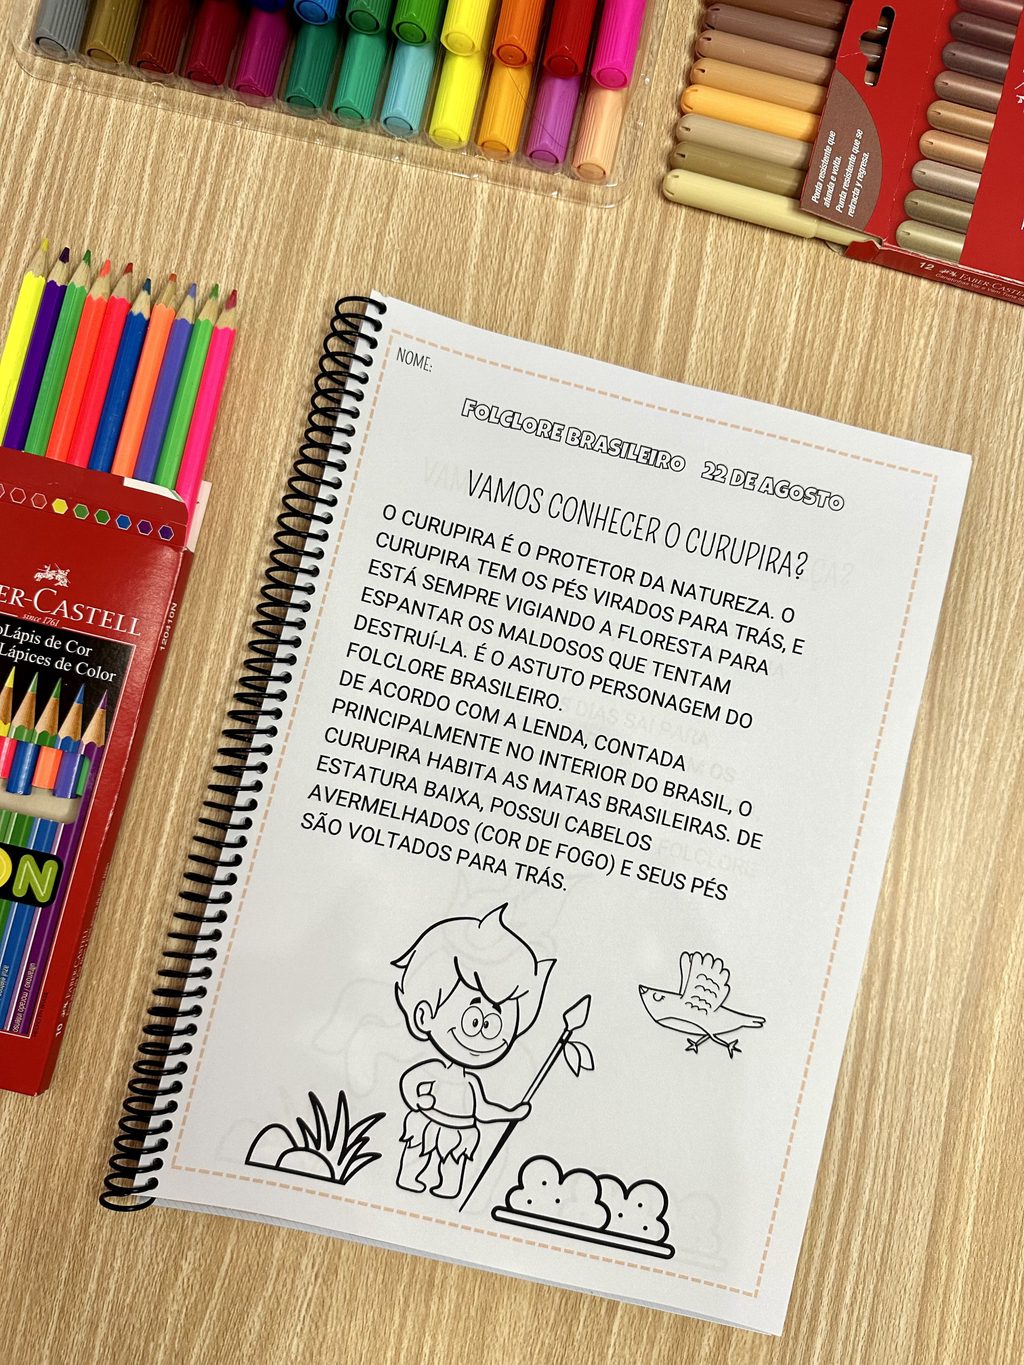 Ponta resistente que
afunda e volta.
Punta resistente que se
retracta y regresa.
12
FABER-CASTELL
NOME:
FOLCLORE BRASILEIRO 22 DE AGOSTO
VAMOS CONHECER O CURUPIRA?
O CURUPIRA É O PROTETOR DA NATUREZA. O
CURUPIRA TEM OS PÉS VIRADOS PARA TRÁS, E
ESTÁ SEMPRE VIGIANDO A FLORESTA PARA
ESPANTAR OS MALDOSOS QUE TENTAM
DESTRUÍ-LA. É O ASTUTO PERSONAGEM DO
FOLCLORE BRASILEIRO.
DE ACORDO COM A LENDA, CONTADA
PRINCIPALMENTE NO INTERIOR DO BRASIL, O
CURUPIRA HABITA AS MATAS BRASILEIRAS. DE
ESTATURA BAIXA, POSSUI CABELOS
AVERMELHADOS (COR DE FOGO) E SEUS PÉS
SÃO VOLTADOS PARA TRÁS.
ER-CASTELL
since 1761
Lápis de Cor
Lápices de Color
120110N
ON